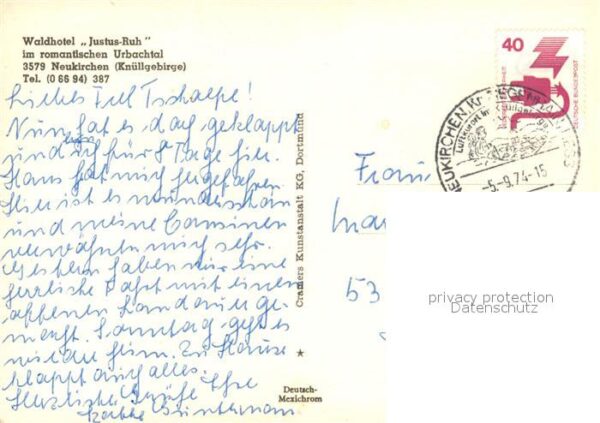 Waldhotel „Justus-Ruh"
im romantischen Urbachtal
3579 Neukirchen (Knüllgebirge)
Tel. (0 66 94) 387
Liebes Frl Tschaepe!
Nun hat es doch geklappt
und ich bin für 8 Tage hier.
Hans hat mich hergefahren
Hier ist es wunderschön
und meine Cousinen
verwöhnen mich sehr.
Gestern haben wir eine
herrliche Fahrt mit einem
offenen Landauer ge-
macht. Sonntag geht es
wieder heim. Zu Hause
klappt auch alles.
Herzliche Grüße Ihre
Cramers Kunstanstalt KG, Dortmund
Deutsch-
Mexichrom
40
DEUTSCHE BUNDESPOST
NEUKIRCHEN KR ZIEGENHAIN
Luftkurort im Knüllgebirge
-5.-9.74-15
Frau
53
privacy protection
Datenschutz